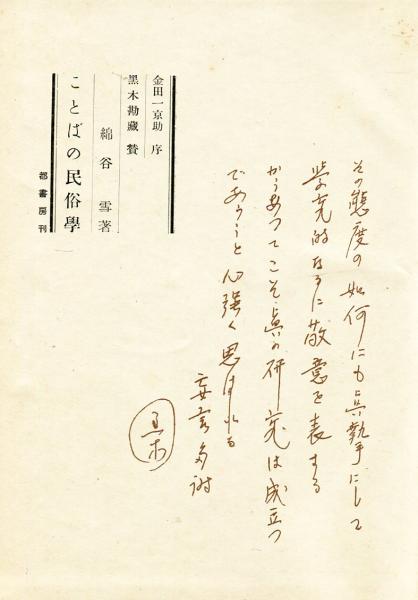 その態度の如何にも眞摯にして
学究的なるに敬意を表する
かうあつてこそ眞の研究は成立つ
であらうと心強く思はれる
妄言多謝
黒木
金田一京助 序
黑木勘藏 贊
綿谷 雪著
ことばの民俗學
都書房刊